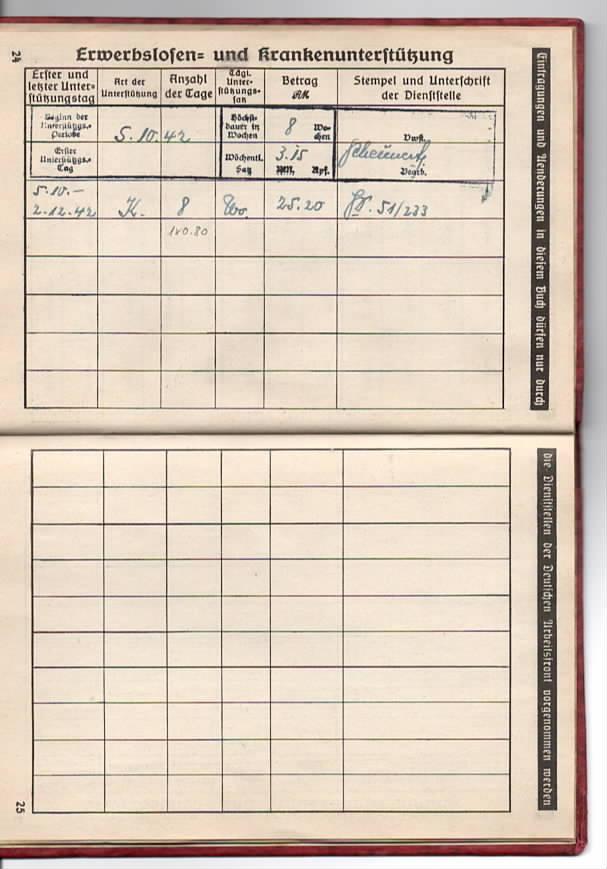 24
Erwerbslosen= und Krankenunterstützung
Erster und letzter Unter=stützungstag
Art der Unterstützung
Anzahl der Tage
Tägl. Unter=stützungs=satz
Betrag RM
Stempel und Unterschrift der Dienststelle
Beginn der Unterstützgs.=Periode
5.10.42
Höchst=dauer in Wochen
8 Wo=chen
Erster Unterstützgs.=Tag
Wöchentl. Satz
3.15
RM. Rpf.
5.10.–
2.12.42
K.
8
Wo.
25.20
51/233
180.80
Eintragungen und Aenderungen in diesem Buch dürfen nur durch
die Dienststellen der Deutschen Arbeitsfront vorgenommen werden
25